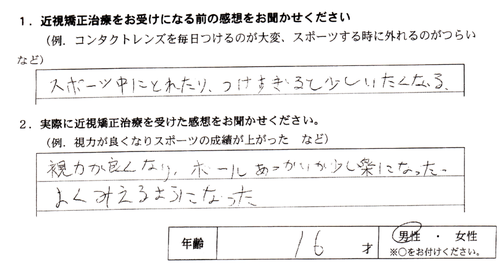 １．近視矯正治療をお受けになる前の感想をお聞かせください
（例．コンタクトレンズを毎日つけるのが大変、スポーツする時に外れるのがつらい
など）
スポーツ中にとれたり、つけすぎると少しいたくなる。
２．実際に近視矯正治療を受けた感想をお聞かせください。
（例．視力が良くなりスポーツの成績が上がった　など）
視力が良くなり、ボールあつかいが少し楽になった。
よくみえるようになった
年齢 16 才 男性 ・ 女性
※○をお付けください。